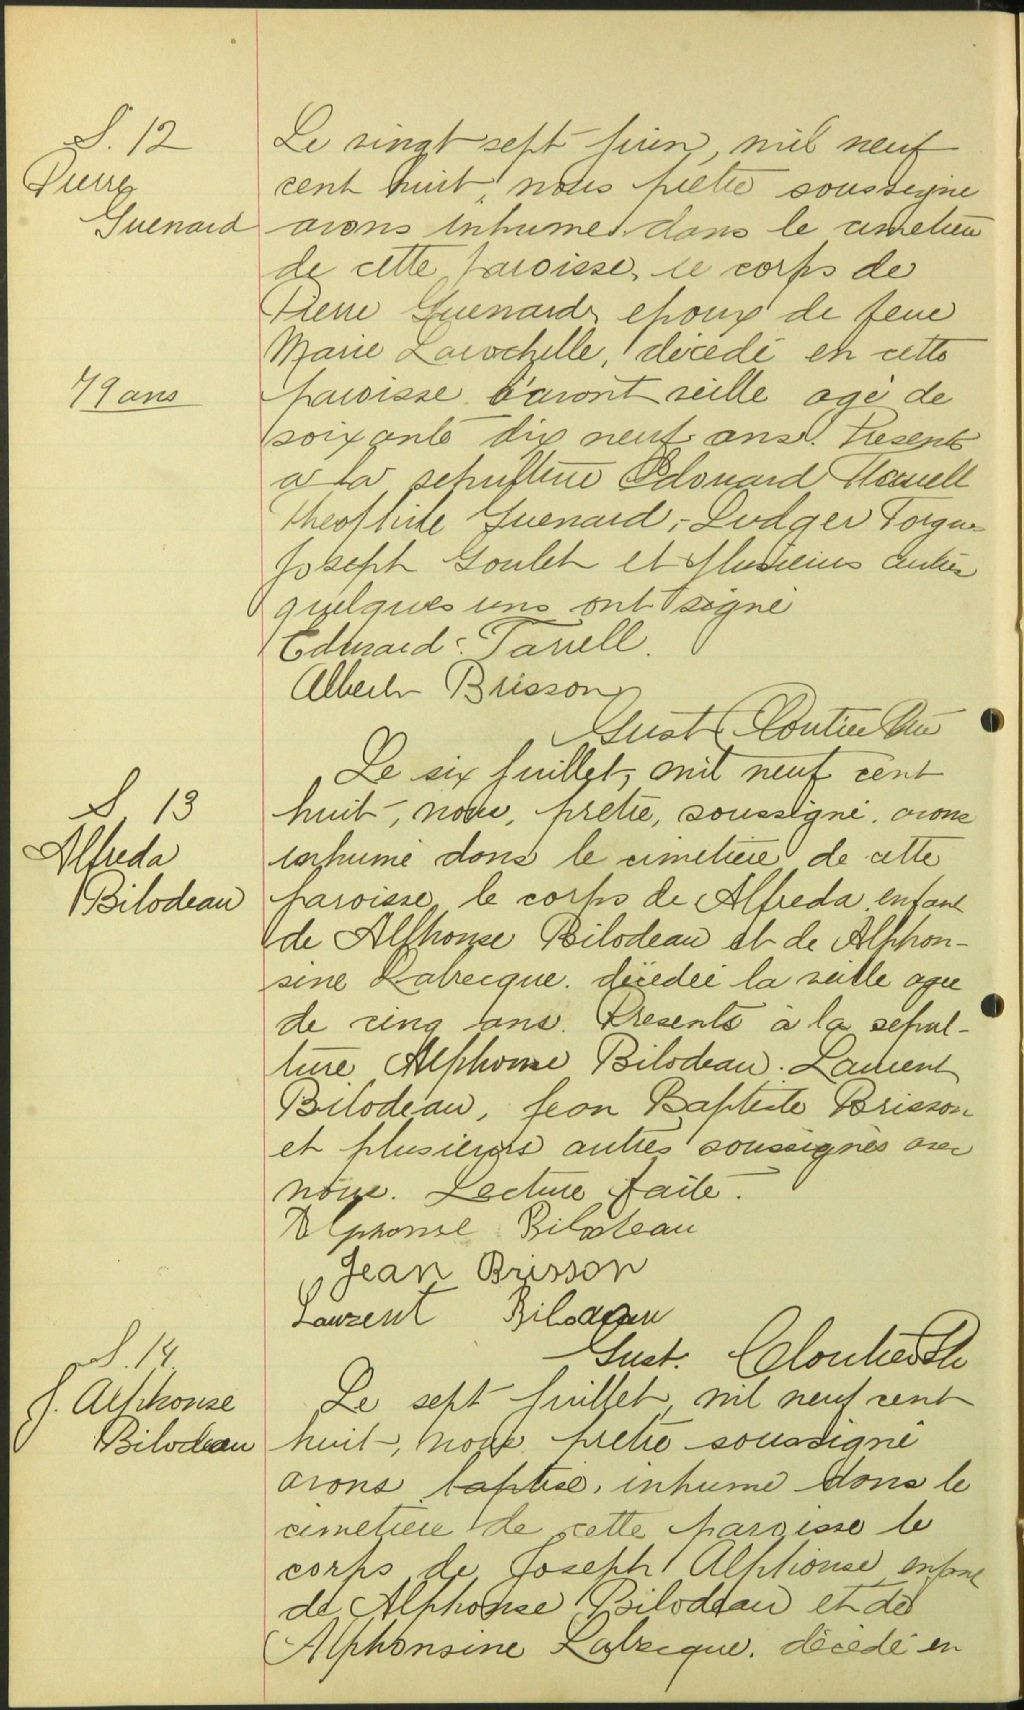 S. 12
Pierre
Guenard
79 ans
Le vingt sept juin, mil neuf
cent huit, nous prêtre soussigné
avons inhumé dans le cimetière
de cette paroisse, le corps de
Pierre Guenard, epoux de feue
Marie Larochelle, décédé en cette
paroisse l'avant veille agé de
soixante dix neuf ans. Presents
a la sepulture Edouard
Theophile Guenard, Ludger
Joseph Goulet et plusieurs autres
quelques uns ont signé
Edouard Tarrell.
Albert Brisson
Gust Cloutier Ptre
S. 13
Alfreda
Bilodeau
Le six juillet, mil neuf cent
huit, nous, prêtre, soussigné, avons
inhumé dans le cimetière de cette
paroisse le corps de Alfreda, enfant
de Alphonse Bilodeau et de Alphon-
sine Labrecque. décédée la veille agee
de cinq ans. Presents à la sepul-
ture Alphonse Bilodeau. Laurent
Bilodeau, Jean Baptiste Brisson
et plusieurs autres soussignés avec
nous. Lecture faite.
Alphonse Bilodeau
Jean Brisson
Laurent Bilodeau
Gust. Cloutier Ptre
S. 14.
J. Alphonse
Bilodeau
Le sept juillet, mil neuf cent
huit, nous prêtre soussigné
avons baptisé, inhumé dans le
cimetière de cette paroisse le
corps de Joseph Alphonse enfant
de Alphonse Bilodeau et de
Alphonsine Labrecque. décédé en